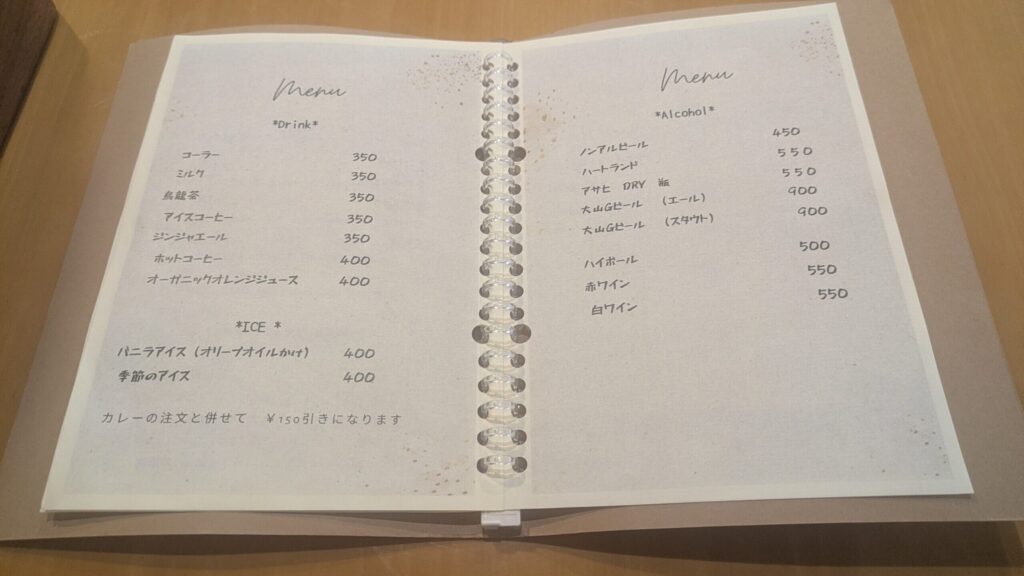 Menu
*Drink*
コーラー 350
ミルク 350
烏龍茶 350
アイスコーヒー 350
ジンジャエール 350
ホットコーヒー 400
オーガニックオレンジジュース 400
*ICE *
バニラアイス（オリーブオイルかけ） 400
季節のアイス 400
カレーの注文と併せて ￥150引きになります
Menu
*Alcohol*
ノンアルビール 450
ハートランド 550
アサヒ DRY 瓶 550
大山Gビール （エール） 900
大山Gビール （スタウト） 900
ハイボール 500
赤ワイン 550
白ワイン 550